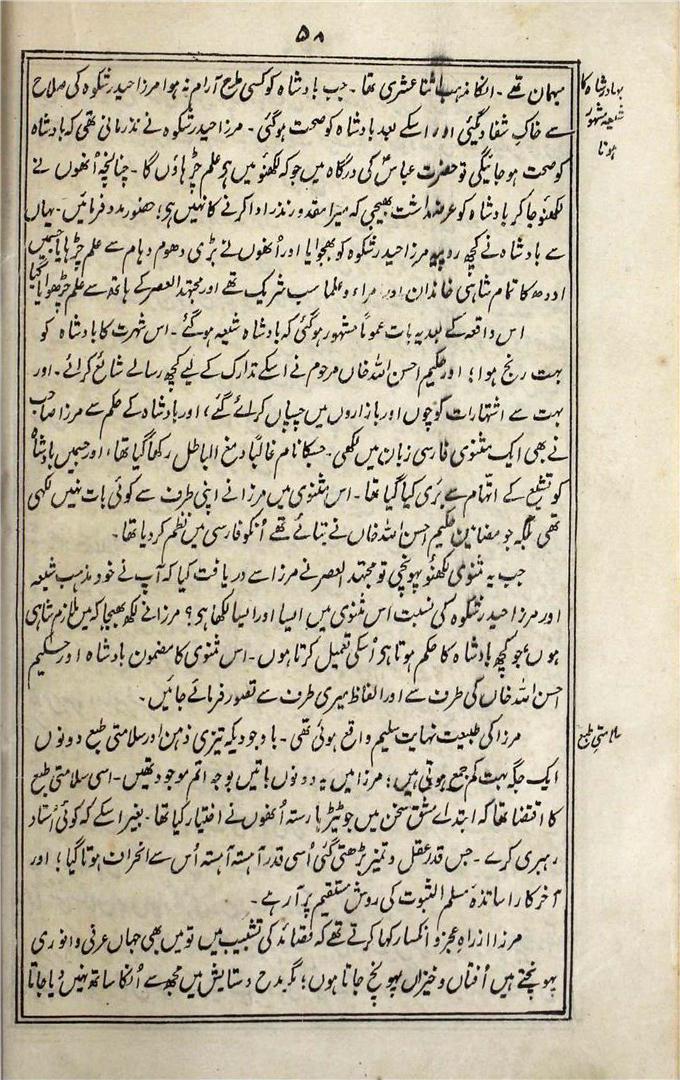 ۵۸
بہادر شاہ کا
شیعہ مشہور
ہونا
مہمان تھے۔ انکا مذہب اثنا عشری تھا۔ جب بادشاہ کو کسی طرح آرام نہ ہوا مرزا حیدر شکوہ کی صلاح
سے خاکِ شفا دیگئی اور اسکے بعد بادشاہ کو صحت ہوگئی۔ مرزا حیدر شکوہ نے نذر مانی تھی کہ بادشاہ
کو صحت ہو جائیگی تو حضرت عباسؑ کی درگاہ میں جو کہ لکھنؤ میں ہی علم چڑہاؤں گا۔ چنانچہ اُنھوں نے
لکھنؤ جاکر بادشاہ کو عرضداشت بھیجی کہ میرا مقدور نذر ادا کرنے کا نہیں ہی؛ حضور مدد فرمائیں۔ یہاں
سے بادشاہ نے کچھ روپیہ مرزا حیدر شکوہ کو بھجوایا اور اُنھوں نے بڑی دھوم دہام سے علم چڑہایا جسمیں
اودھ کا تمام شاہی خاندان اور امراء و علما سب شریک تھے اور مجتہد العصر کے ہاتھ سے علم چڑھوایا گیا
اس واقعہ کے بعد یہ بات عموماً مشہور ہوگئی کہ بادشاہ شیعہ ہوگئے۔ اس شہرت کا بادشاہ کو
بہت رنج ہوا؛ اور حکیم احسن اللہ خاں مرحوم نے اسکے تدارک کے لیے کچھ رسالے شائع کرائے۔ اور
بہت سے اشتہارات کوچوں اور بازاروں میں چسپاں کرائے گئے، اور بادشاہ کے حکم سے مرزا صاحب
نے بھی ایک مثنوی فارسی زبان میں لکھی۔ جسکا نام غالباً دمغ الباطل رکھا گیا تھا، اور جسمیں بادشاہ
کو تشیع کے اتہام سے بَری کیا گیا تھا۔ اس مثنوی میں مرزا نے اپنی طرف سے کوئی بات نہیں لکھی
تھی بلکہ جو مضامین حکیم احسن اللہ خاں نے بتائے تھے اُنکو فارسی میں نظم کر دیا تھا۔
جب یہ مثنوی لکھنؤ پہونچی تو مجتہد العصر نے مرزا سے دریافت کیا کہ آپ نے خود مذہب شیعہ
اور مرزا حیدر شکوہ کی نسبت اس مثنوی میں ایسا اور ایسا لکھا ہی؟ مرزا نے لکھ بھیجا کہ میں ملازم شاہی
ہوں، جو کچھ بادشاہ کا حکم ہوتا ہی اُسکی تعمیل کرتا ہوں۔ اس مثنوی کا مضمون بادشاہ اور حکیم
احسن اللہ خاں کی طرف سے اور الفاظ میری طرف سے تصور فرمائے جائیں۔
سلامتیِ طبع
مرزا کی طبیعت نہایت سلیم واقع ہوئی تھی۔ باوجودیکہ تیزی ذہن اور سلامتی طبع دونوں
ایک جگہ بہت کم جمع ہوتی ہیں؛ مرزا میں یہ دونوں باتیں بوجہ اتم موجود تھیں۔ اسی سلامتی طبع
کا اقتضا تھا کہ ابتداے مشق سخن میں جو ٹیڑہا رستہ اُنھوں نے اختیار کیا تھا۔ بغیر اسکے کہ کوئی اُستاد
رہبری کرے۔ جس قدر عقل و تمیز بڑھتی گئی اُسی قدر آہستہ آہستہ اُس سے انحراف ہوتا گیا؛ اور
آخر کار اساتذہ مسلم الثبوت کی روش مستقیم پر آ رہے۔
مرزا از راہِ عجز و انکسار کہا کرتے تھے کہ قصائد کی تشبیب میں تو میں بھی جہاں عرفی و انوری
پہونچتے ہیں اُفتاں و خیزاں پہونچ جاتا ہوں؛ مگر مدح و ستایش میں مجھسے اُنکا ساتھ نہیں دیا جاتا